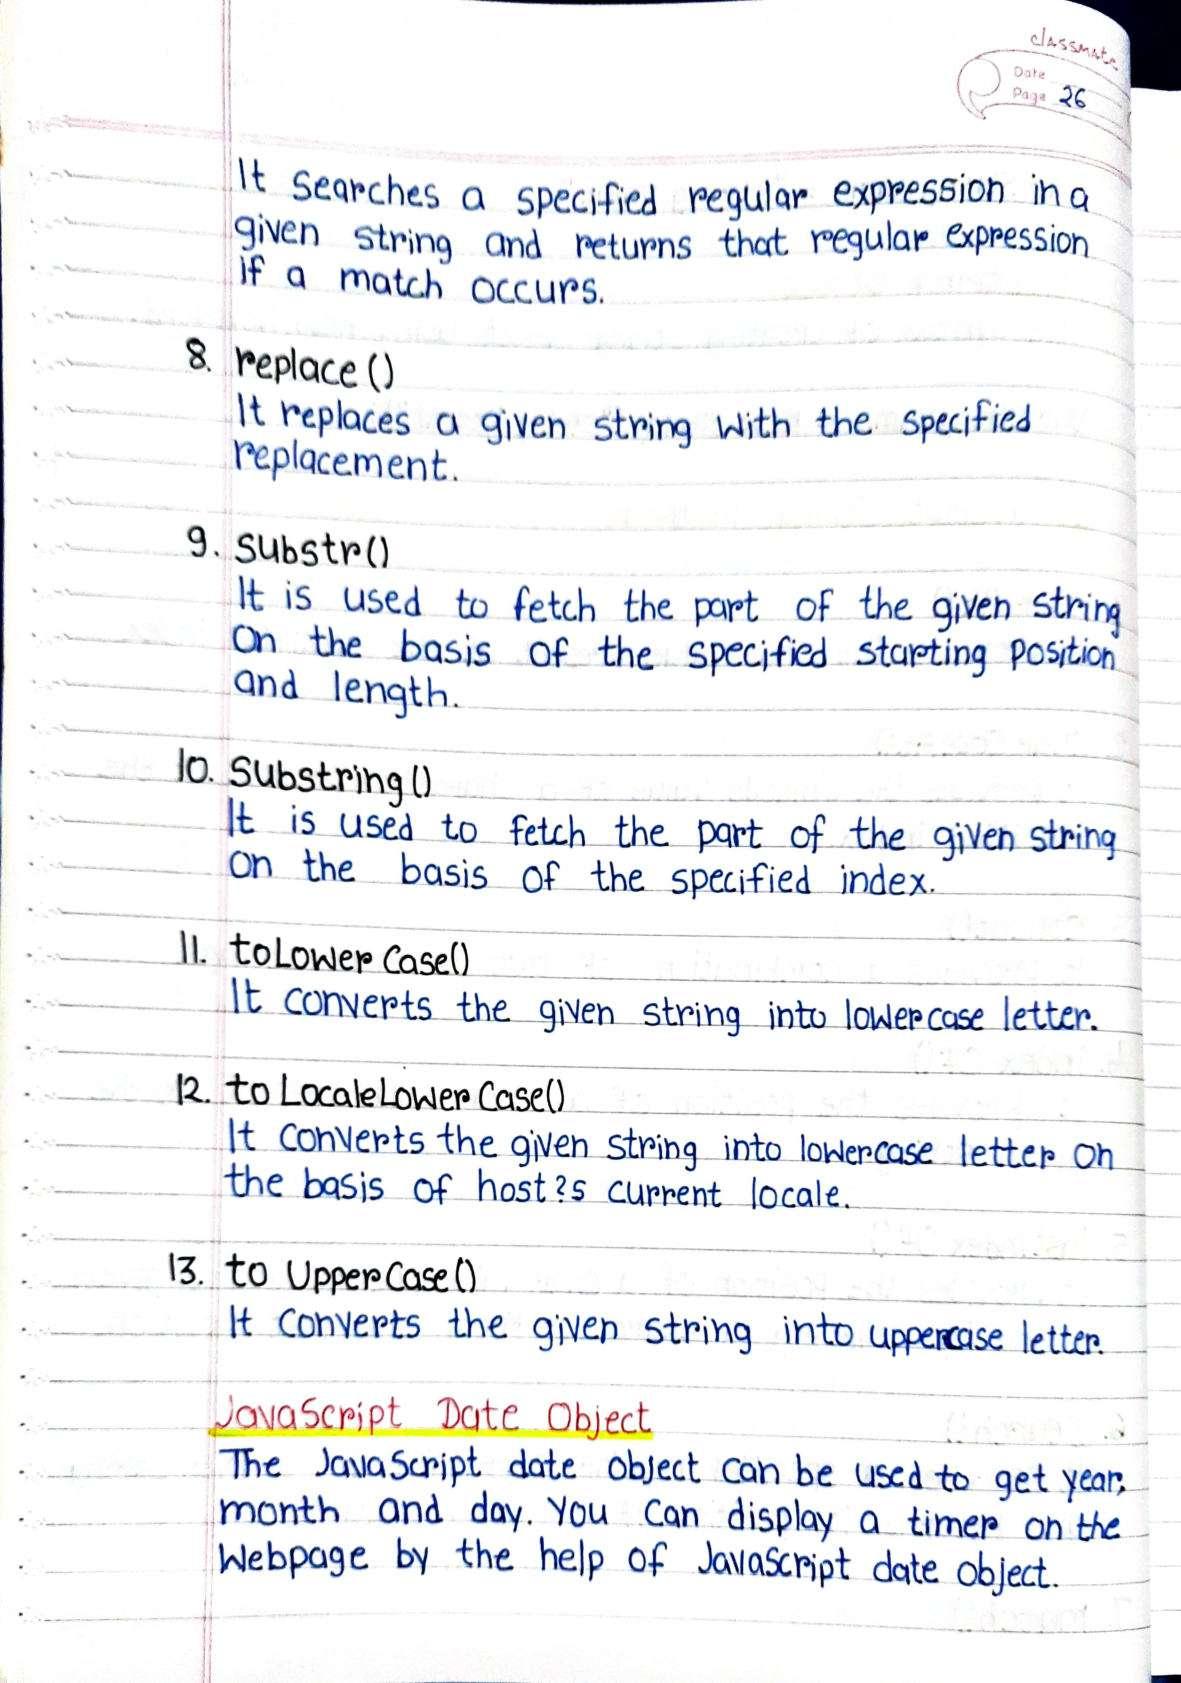 classmate
Date
Page 26
It searches a specified regular expression in a
given string and returns that regular expression
if a match occurs.
8. replace()
It replaces a given string with the specified
replacement.
9. substr()
It is used to fetch the part of the given string
on the basis of the specified starting position
and length.
10. substring()
It is used to fetch the part of the given string
on the basis of the specified index.
11. toLower Case()
It converts the given string into lowercase letter.
12. to LocaleLower Case()
It converts the given string into lowercase letter on
the basis of host?s current locale.
13. to UpperCase()
It converts the given string into uppercase letter.
JavaScript Date Object
The JavaScript date object can be used to get year,
month and day. You can display a timer on the
Webpage by the help of JavaScript date object.